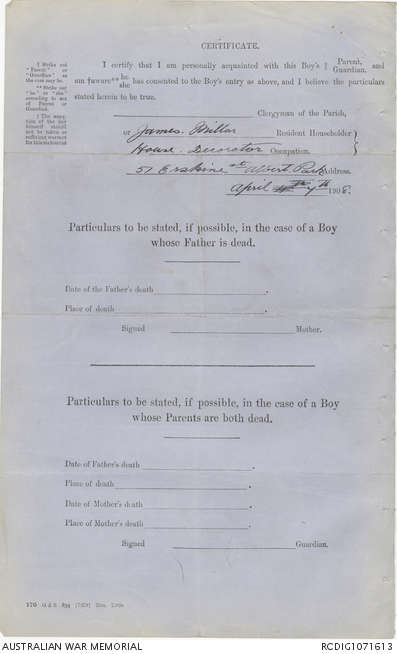 CERTIFICATE.
‡ Strike out
"Parent" or
"Guardian" as
the case may be.
** Strike out
"he" or "she"
according to sex
of Parent or
Guardian.
of the boy
himself should
not be taken as
sufficient warrant
for this statement
I certify that I am personally acquainted with this Boy's ‡ Parent, Guardian, and
am ‡aware** he she has consented to the Boy's entry as above, and I believe the particulars
stated herein to be true.
Clergyman of the Parish,
or James Millar Resident Householder
House Decorator Occupation.
57 Erskine st Albert Park Address.
April 7th 1908.
Particulars to be stated, if possible, in the case of a Boy
whose Father is dead.
Date of the Father's death
Place of death
Signed Mother.
Particulars to be stated, if possible, in the case of a Boy
whose Parents are both dead.
Date of Father's death
Place of death
Date of Mother's death
Place of Mother's death
Signed Guardian.
176
AUSTRALIAN WAR MEMORIAL
RCDIG1071613